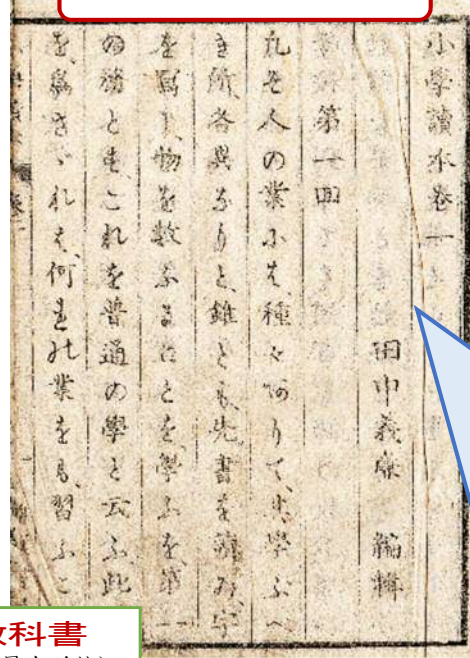 小學讀本卷一
田中義廉 編輯
第一回
凡そ人の業には種々ありて、其學ぶへ
き所各異なりと、雖とも、先書を讀み、字
を寫し、物を數ふることを、學ふを第一
の務とす、これを普通の學と云ふ、此
を爲さゞれは、何れの業をも、習ふこ
科書